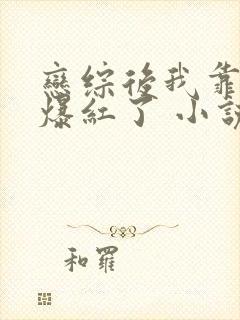 戀綜後我靠
爆紅了 小説
和羅